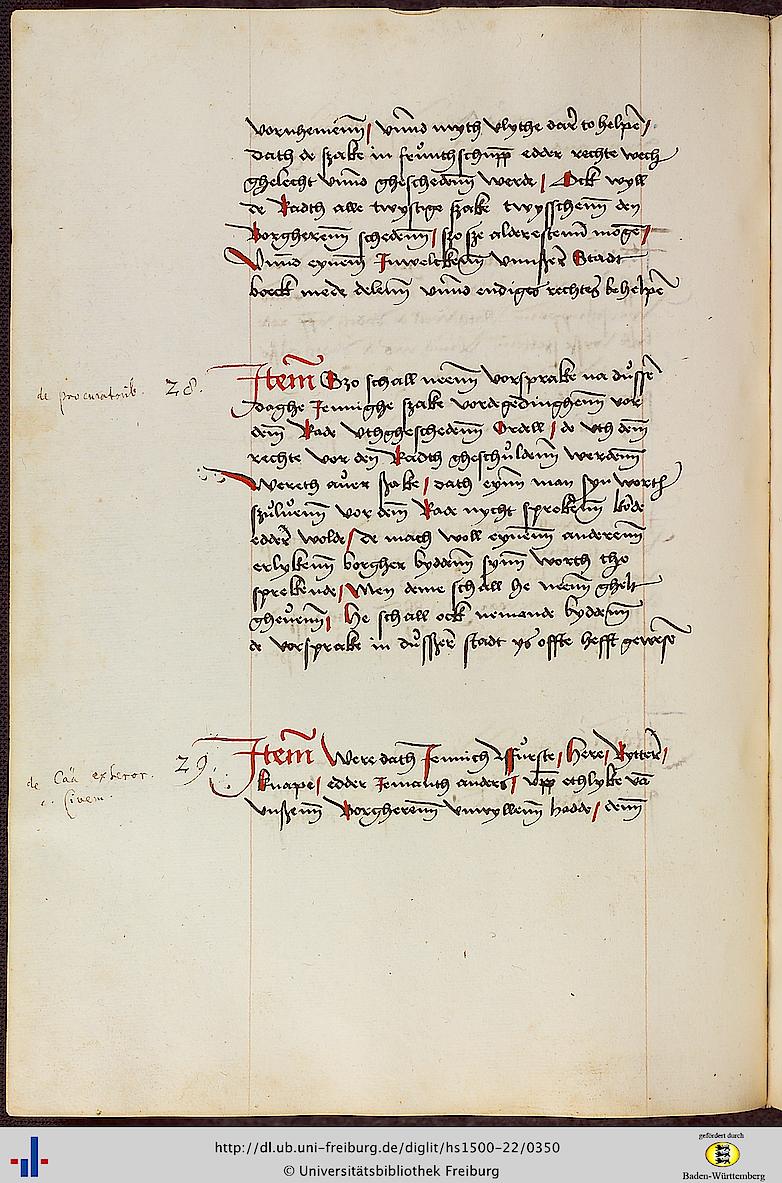 vornhemenn / vnnd myth vlythe dar to helpe /
dath de szake in fruntschupp edder rechte wech
ghelecht vnnd gheschedenn werde / Ock wyll
de Radth alle twystige szake twysschenn den
Borgherenn schedenn / szo sze alderestenn moge /
Vnnd eynem Juwelckenn vnnszer Stadt
boeck mede delenn vnnd endiges rechtes behelpe
de procuratorib. 28. Item Szo schall neenn vorsprake na dusser
daghe Jennighe szake vordegedinghenn vor
dem Rade vthgheschedenn Ordell / de vth dem
rechte vor den Radth gheschuldenn werdenn
Wereth auer szake / dath eynn man syn worth
szuluenn vor dem Rade nycht sprekenn konde
edder wolde / de mach woll eynenn anderenn
erlykenn borgher byddenn synn worth tho
sprekende / Men deme schall he neenn ghelt
gheuenn / He schall ock nemande byddenn
de vorsprake in dussher stadt ys offte hefft gewese
de Caa exteror. 29. Item Were dath Jennich Furste / Here / Rytter /
Ciuem. Knape / edder Jemanth anders / vpp ethlyke va
vnszenn Borgherenn vnwyllenn hadde / denn
http://dl.ub.uni-freiburg.de/diglit/hs1500-22/0350
© Universitätsbibliothek Freiburg
gefördert durch
Baden-Württemberg